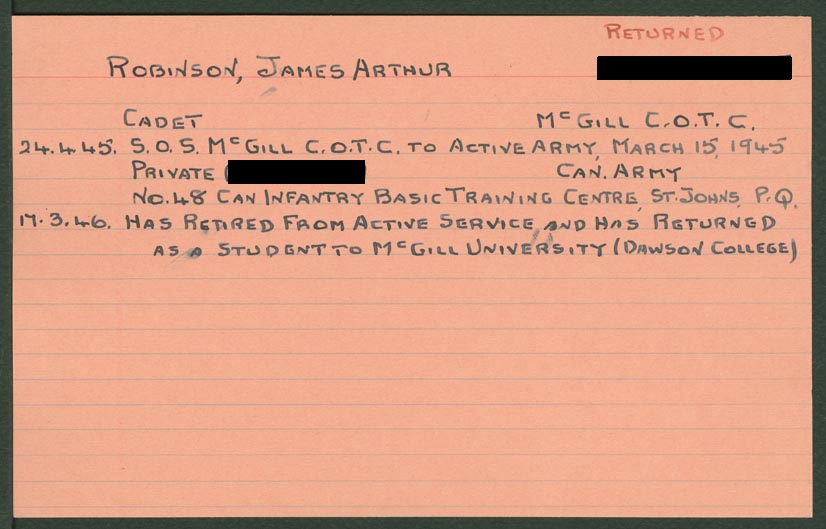 RETURNED
ROBINSON, JAMES ARTHUR
CADET McGILL C.O.T.C.
24.4.45. S.O.S. McGILL C.O.T.C. TO ACTIVE ARMY, MARCH 15, 1945
PRIVATE ( CAN. ARMY
No. 48 CAN INFANTRY BASIC TRAINING CENTRE, ST. JOHNS, P.Q.
17.3.46. HAS RETIRED FROM ACTIVE SERVICE AND HAS RETURNED
AS A STUDENT TO McGILL UNIVERSITY (DAWSON COLLEGE)